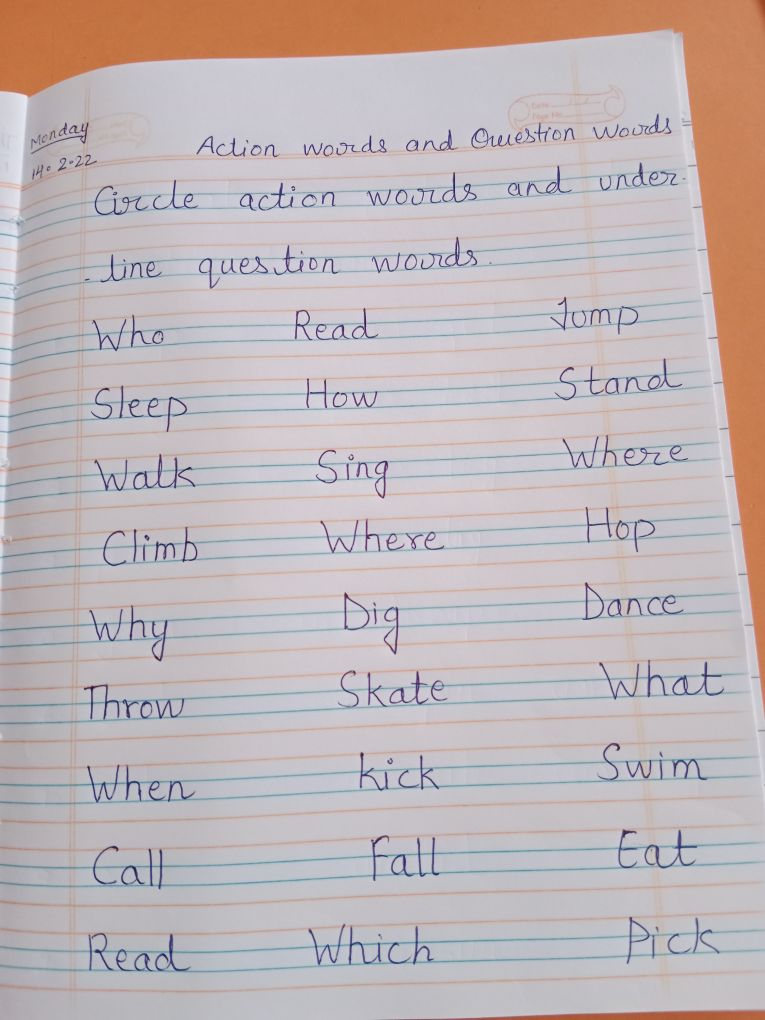 Monday
14.2.22
Action words and Question words
Circle action words and under-
-line question words.
Who Read Jump
Sleep How Stand
Walk Sing Where
Climb Where Hop
Why Dig Dance
Throw Skate What
When kick Swim
Call Fall Eat
Read Which Pick